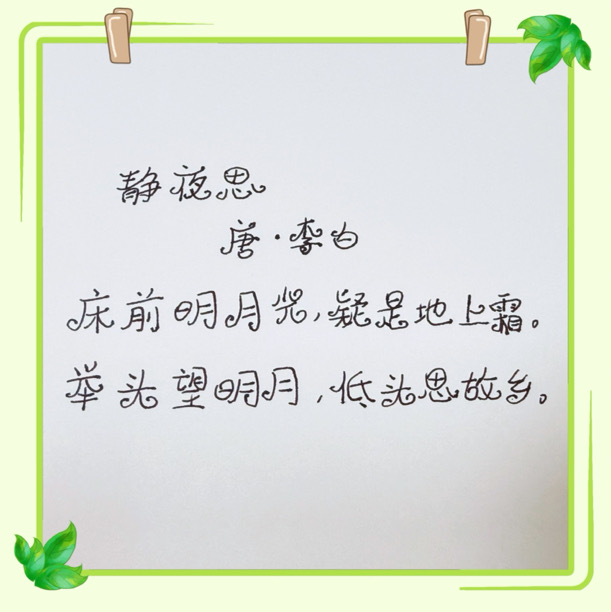 静夜思
唐·李白
床前明月光,疑是地上霜。
举头望明月,低头思故乡。